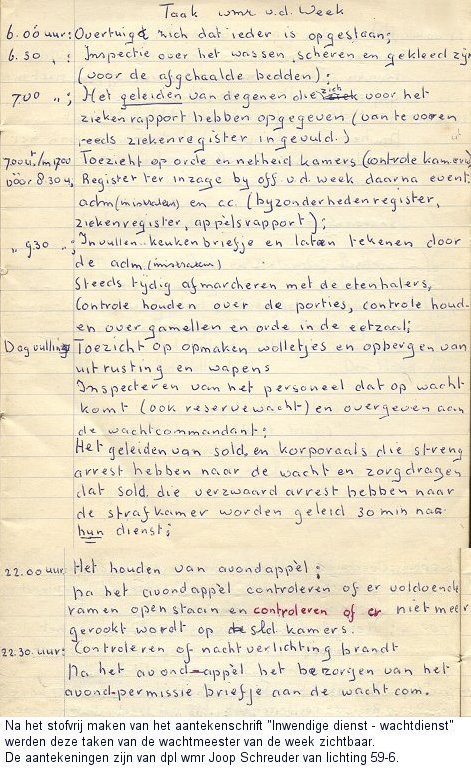 Taak wmr v.d. Week
6.00 uur: Overtuigt zich dat ieder is opgestaan;
6.30 " : Inspectie over het wassen, scheren en gekleed zijn
(voor de afgehaalde bedden);
7.00 " ; Het geleiden van degenen die zich voor het
ziekenrapport hebben opgegeven (van te voren
reeds ziekenregister ingevuld.)
7.00 u t/m 17.00 Toezicht op orde en netheid kamers (controle kamers)
vóór 8.30 u. Register ter inzage by off v.d. week daarna event.
adm(inistrateur) en cc. (byzonderhedenregister,
ziekenregister, appèlsrapport);
" 9.30 " ; Invullen keukenbriefje en laten tekenen door
de adm.(inistrateur)
Steeds tydig afmarcheren met de etenhalers,
Controle houden over de porties, controle houd-
en over gamellen en orde in de eetzaal;
Dagvulling Toezicht op opmaken wolletjes en opbergen van
uitrusting en wapens
Inspecteren van het personeel dat op wacht
komt (ook reservewacht) en overgeven aan
de wachtcommandant;
Het geleiden van sold. en korporaals die streng
arrest hebben naar de wacht en zorgdragen
dat sold. die verzwaard arrest hebben naar
de strafkamer worden geleid 30 min na
hun dienst;
22.00 uur: Het houden van avondappèl;
Na het avondappèl controleren of er voldoende
ramen open staan en controleren of er niet meer
gerookt wordt op de sld. kamers.
22.30 uur: Controleren of nachtverlichting brandt
Na het avond-appèl het bezorgen van het
avondpermissie briefje aan de wachtcom.
Na het stofvrij maken van het aantekenschrift "Inwendige dienst - wachtdienst"
werden deze taken van de wachtmeester van de week zichtbaar.
De aantekeningen zijn van dpl wmr Joop Schreuder van lichting 59-6.